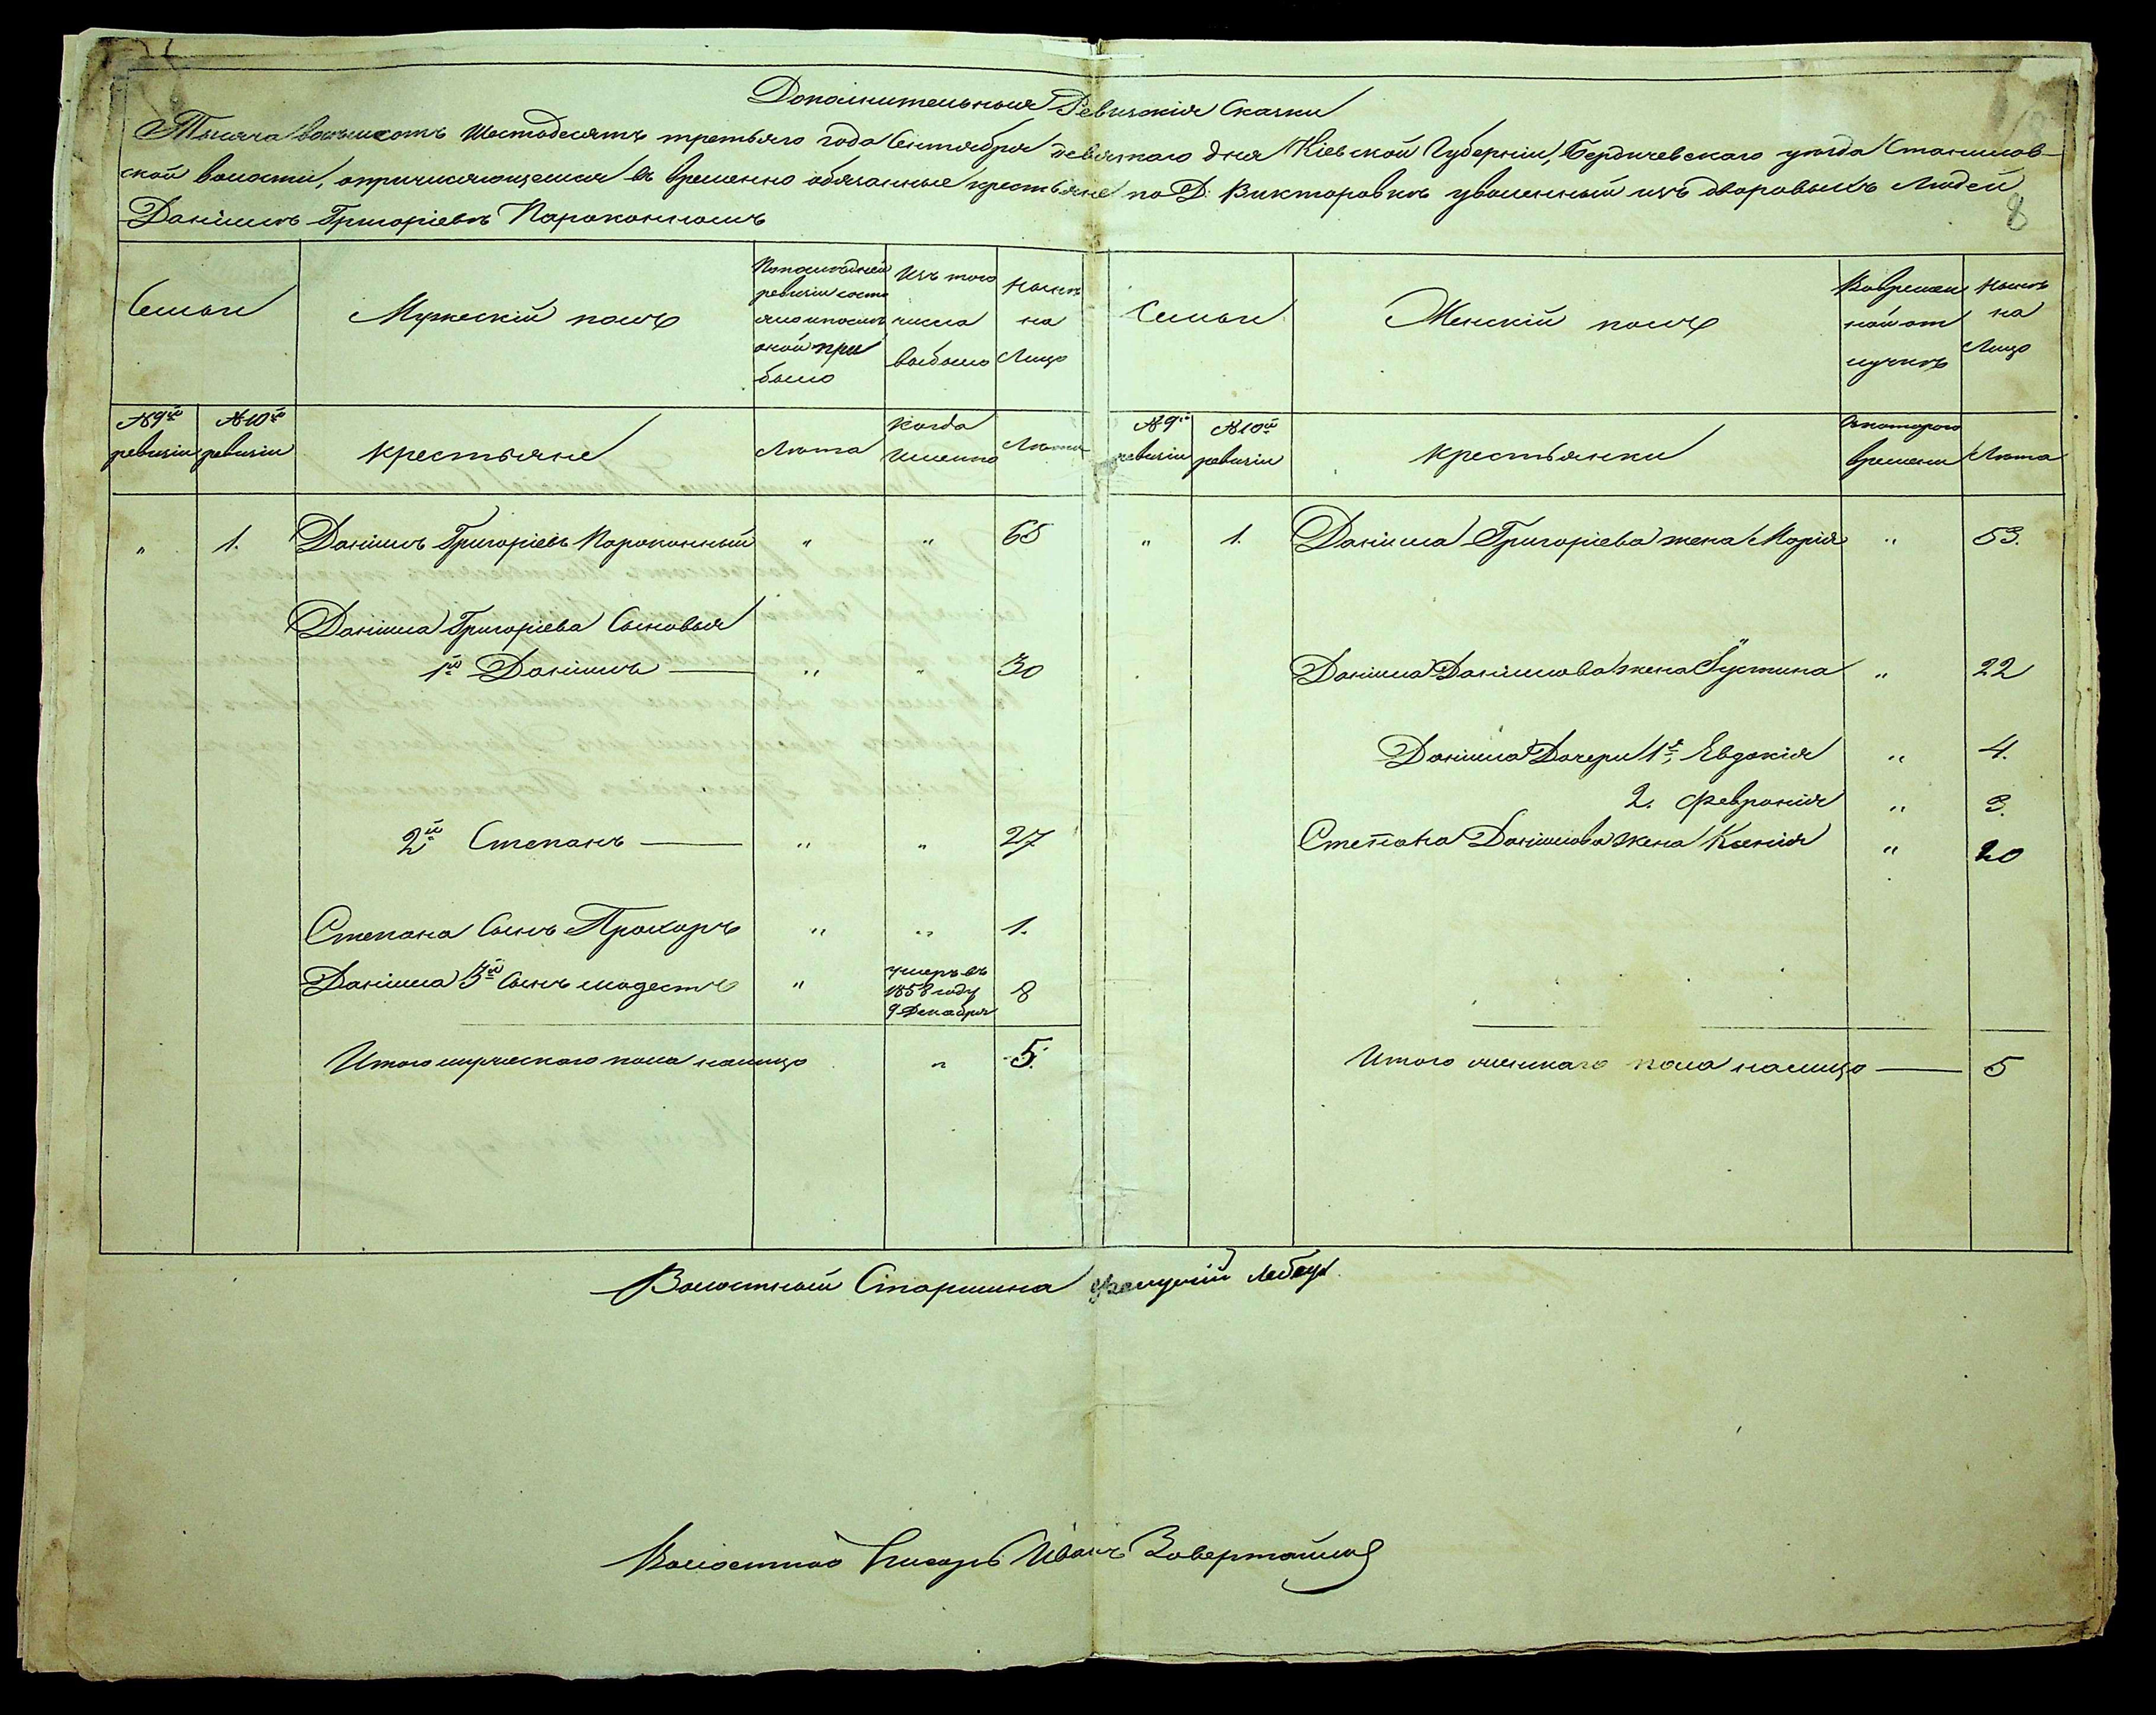 Дополнительныя Ревизскія Сказки
Тысяча восемьсотъ Шестьдесятъ третьяго года Сентября девятаго дня Кіевской Губерніи, Бердичевскаго уѣзда Станилов-
ской волости, о причисляющемся въ временно обязанные крестьяне по Д. Викторовкѣ уволенный изъ дворовыхъ Людей
Даніилъ Григоріевъ Пароконномъ
8
Семьи
Мужескій полъ
По послѣдней
ревизіи состо
яло и послѣ
оной при
было
Изъ того
числа
выбыло
Нынѣ
на
Лицо
Семьи
Женскій полъ
Во времен
ной от
лучкѣ
Нынѣ
на
Лицо
№ 9й
ревизіи
№ 10й
ревизіи
Крестьяне
Лѣта
Когда
Именно
Лѣта
№ 9й
ревизіи
№ 10й
ревизіи
Крестьянки
Съ котораго
времени
Лѣта
" 1. Даніилъ Григоріевъ Пароконный " " 65 " 1. Даніила Григоріева жена Марія " 53.
Даніила Григоріева Сыновья
1й Даніилъ " " 30 Даніила Даніилова жена Іустина " 22
Даніила Дочери 1я Евдокія " 4.
2. Февронія " 3.
2й Степанъ " " 27 Степана Даніилова жена Ксенія " 20
Степана Сынъ Прохоръ " " 1.
Даніила 3й Сынъ Модестъ " умеръ въ
1858 году
9 Декабря
8
Итого мужескаго пола налицо " 5. Итого женскаго пола налицо 5
Волостный Старшина
Волостной Писарь Иванъ